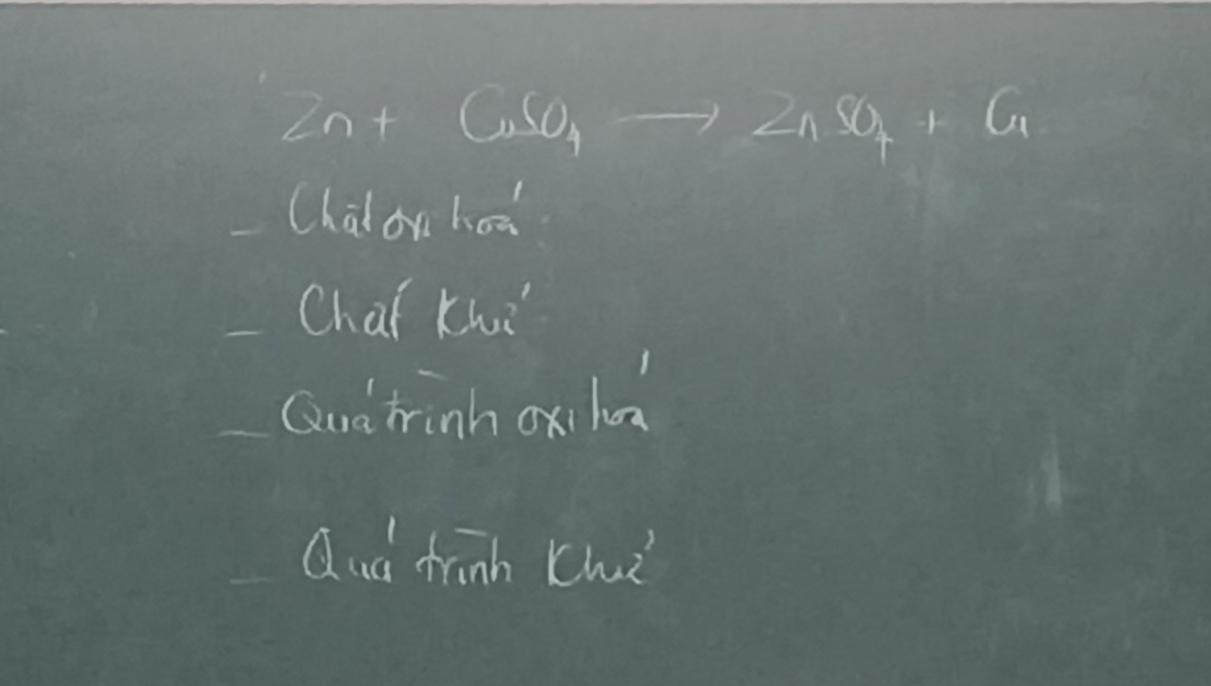 Zn + CuSO4 → ZnSO4 + Cu
- Chất oxi hoá
- Chất khử
- Quá trình oxi hoá
- Quá trình khử